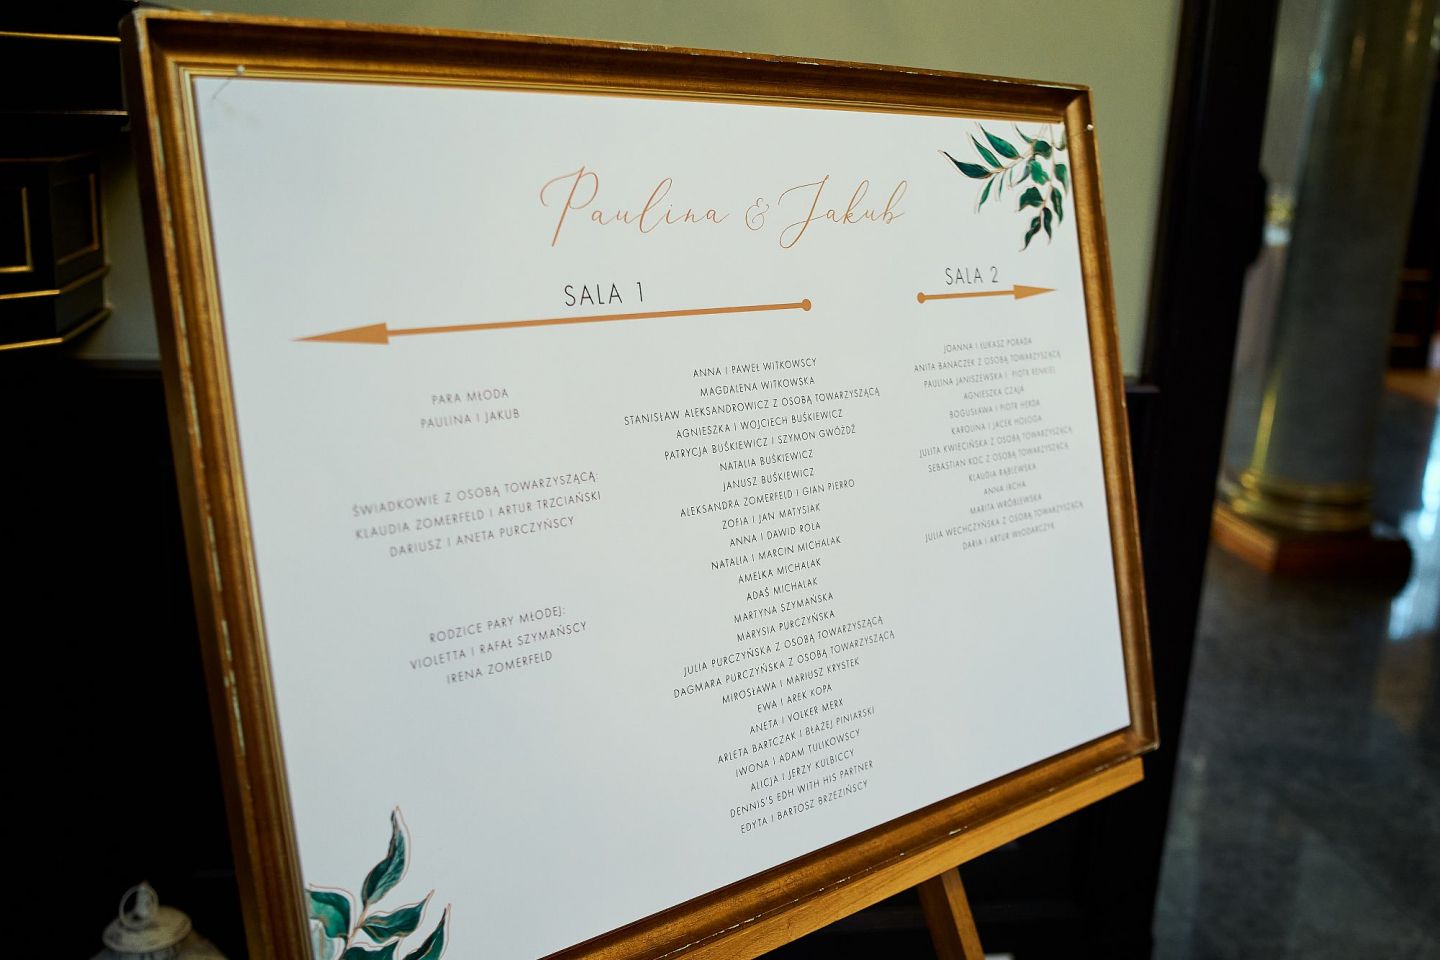 Paulina & Jakub
SALA 1
PARA MŁODA
PAULINA I JAKUB
ŚWIADKOWIE Z OSOBĄ TOWARZYSZĄCĄ:
KLAUDIA ZOMERFELD I ARTUR TRZCIAŃSKI
DARIUSZ I ANETA PURCZYŃSCY
RODZICE PARY MŁODEJ:
VIOLETTA I RAFAŁ SZYMAŃSCY
IRENA ZOMERFELD
ANNA I PAWEŁ WITKOWSCY
MAGDALENA WITKOWSKA
STANISŁAW ALEKSANDROWICZ Z OSOBĄ TOWARZYSZĄCĄ
AGNIESZKA I WOJCIECH BUŚKIEWICZ
PATRYCJA BUŚKIEWICZ I SZYMON GWÓŹDŹ
NATALIA BUŚKIEWICZ
JANUSZ BUŚKIEWICZ
ALEKSANDRA ZOMERFELD I GIAN PIERRO
ZOFIA I JAN MATYSIAK
ANNA I DAWID ROLA
NATALIA I MARCIN MICHALAK
AMELKA MICHALAK
ADAŚ MICHALAK
MARTYNA SZYMAŃSKA
MARYSIA PURCZYŃSKA
JULIA PURCZYŃSKA Z OSOBĄ TOWARZYSZĄCĄ
DAGMARA PURCZYŃSKA Z OSOBĄ TOWARZYSZĄCĄ
MIROSŁAWA I MARIUSZ KRYSTEK
EWA I AREK KOPA
ANETA I VOLKER MERX
ARLETA BARTCZAK I BŁAŻEJ PINIARSKI
IWONA I ADAM TULIKOWSCY
ALICJA I JERZY KULBICCY
DENNIS'S EDH WITH HIS PARTNER
EDYTA I BARTOSZ BRZEZIŃSCY
SALA 2
JOANNA I ŁUKASZ PORADA
ANITA BANACZEK Z OSOBĄ TOWARZYSZĄCĄ
PAULINA JANISZEWSKA I PIOTR RENKIEL
AGNIESZKA CZAJA
BOGUSŁAWA I PIOTR HERDA
KAROLINA I JACEK HOŁODA
JULITA KWIECIŃSKA Z OSOBĄ TOWARZYSZĄCĄ
SEBASTIAN KOC Z OSOBĄ TOWARZYSZĄCĄ
KLAUDIA RĄBLEWSKA
ANNA IRCHA
MARITA WRÓBLEWSKA
JULIA WECHCZYŃSKA Z OSOBĄ TOWARZYSZĄCĄ
DARIA I ARTUR WŁODARCZYK